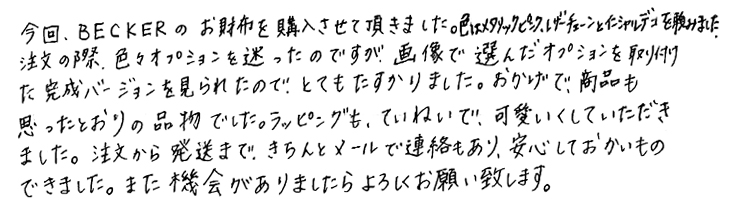 今回、BECKERのお財布を購入させて頂きました。色はメタリックピンク、レザーチェーンとイニシャルデコを頼みました。
注文の際、色々オプションを迷ったのですが、画像で選んだオプションを取り付け
た完成バージョンを見られたので、とてもたすかりました。おかげで、商品も
思ったとおりの品物でした。ラッピングも、ていねいで、可愛いくしていただき
ました。注文から発送まで、きちんとメールで連絡もあり、安心しておかいもの
できました。また機会がありましたらよろしくお願い致します。